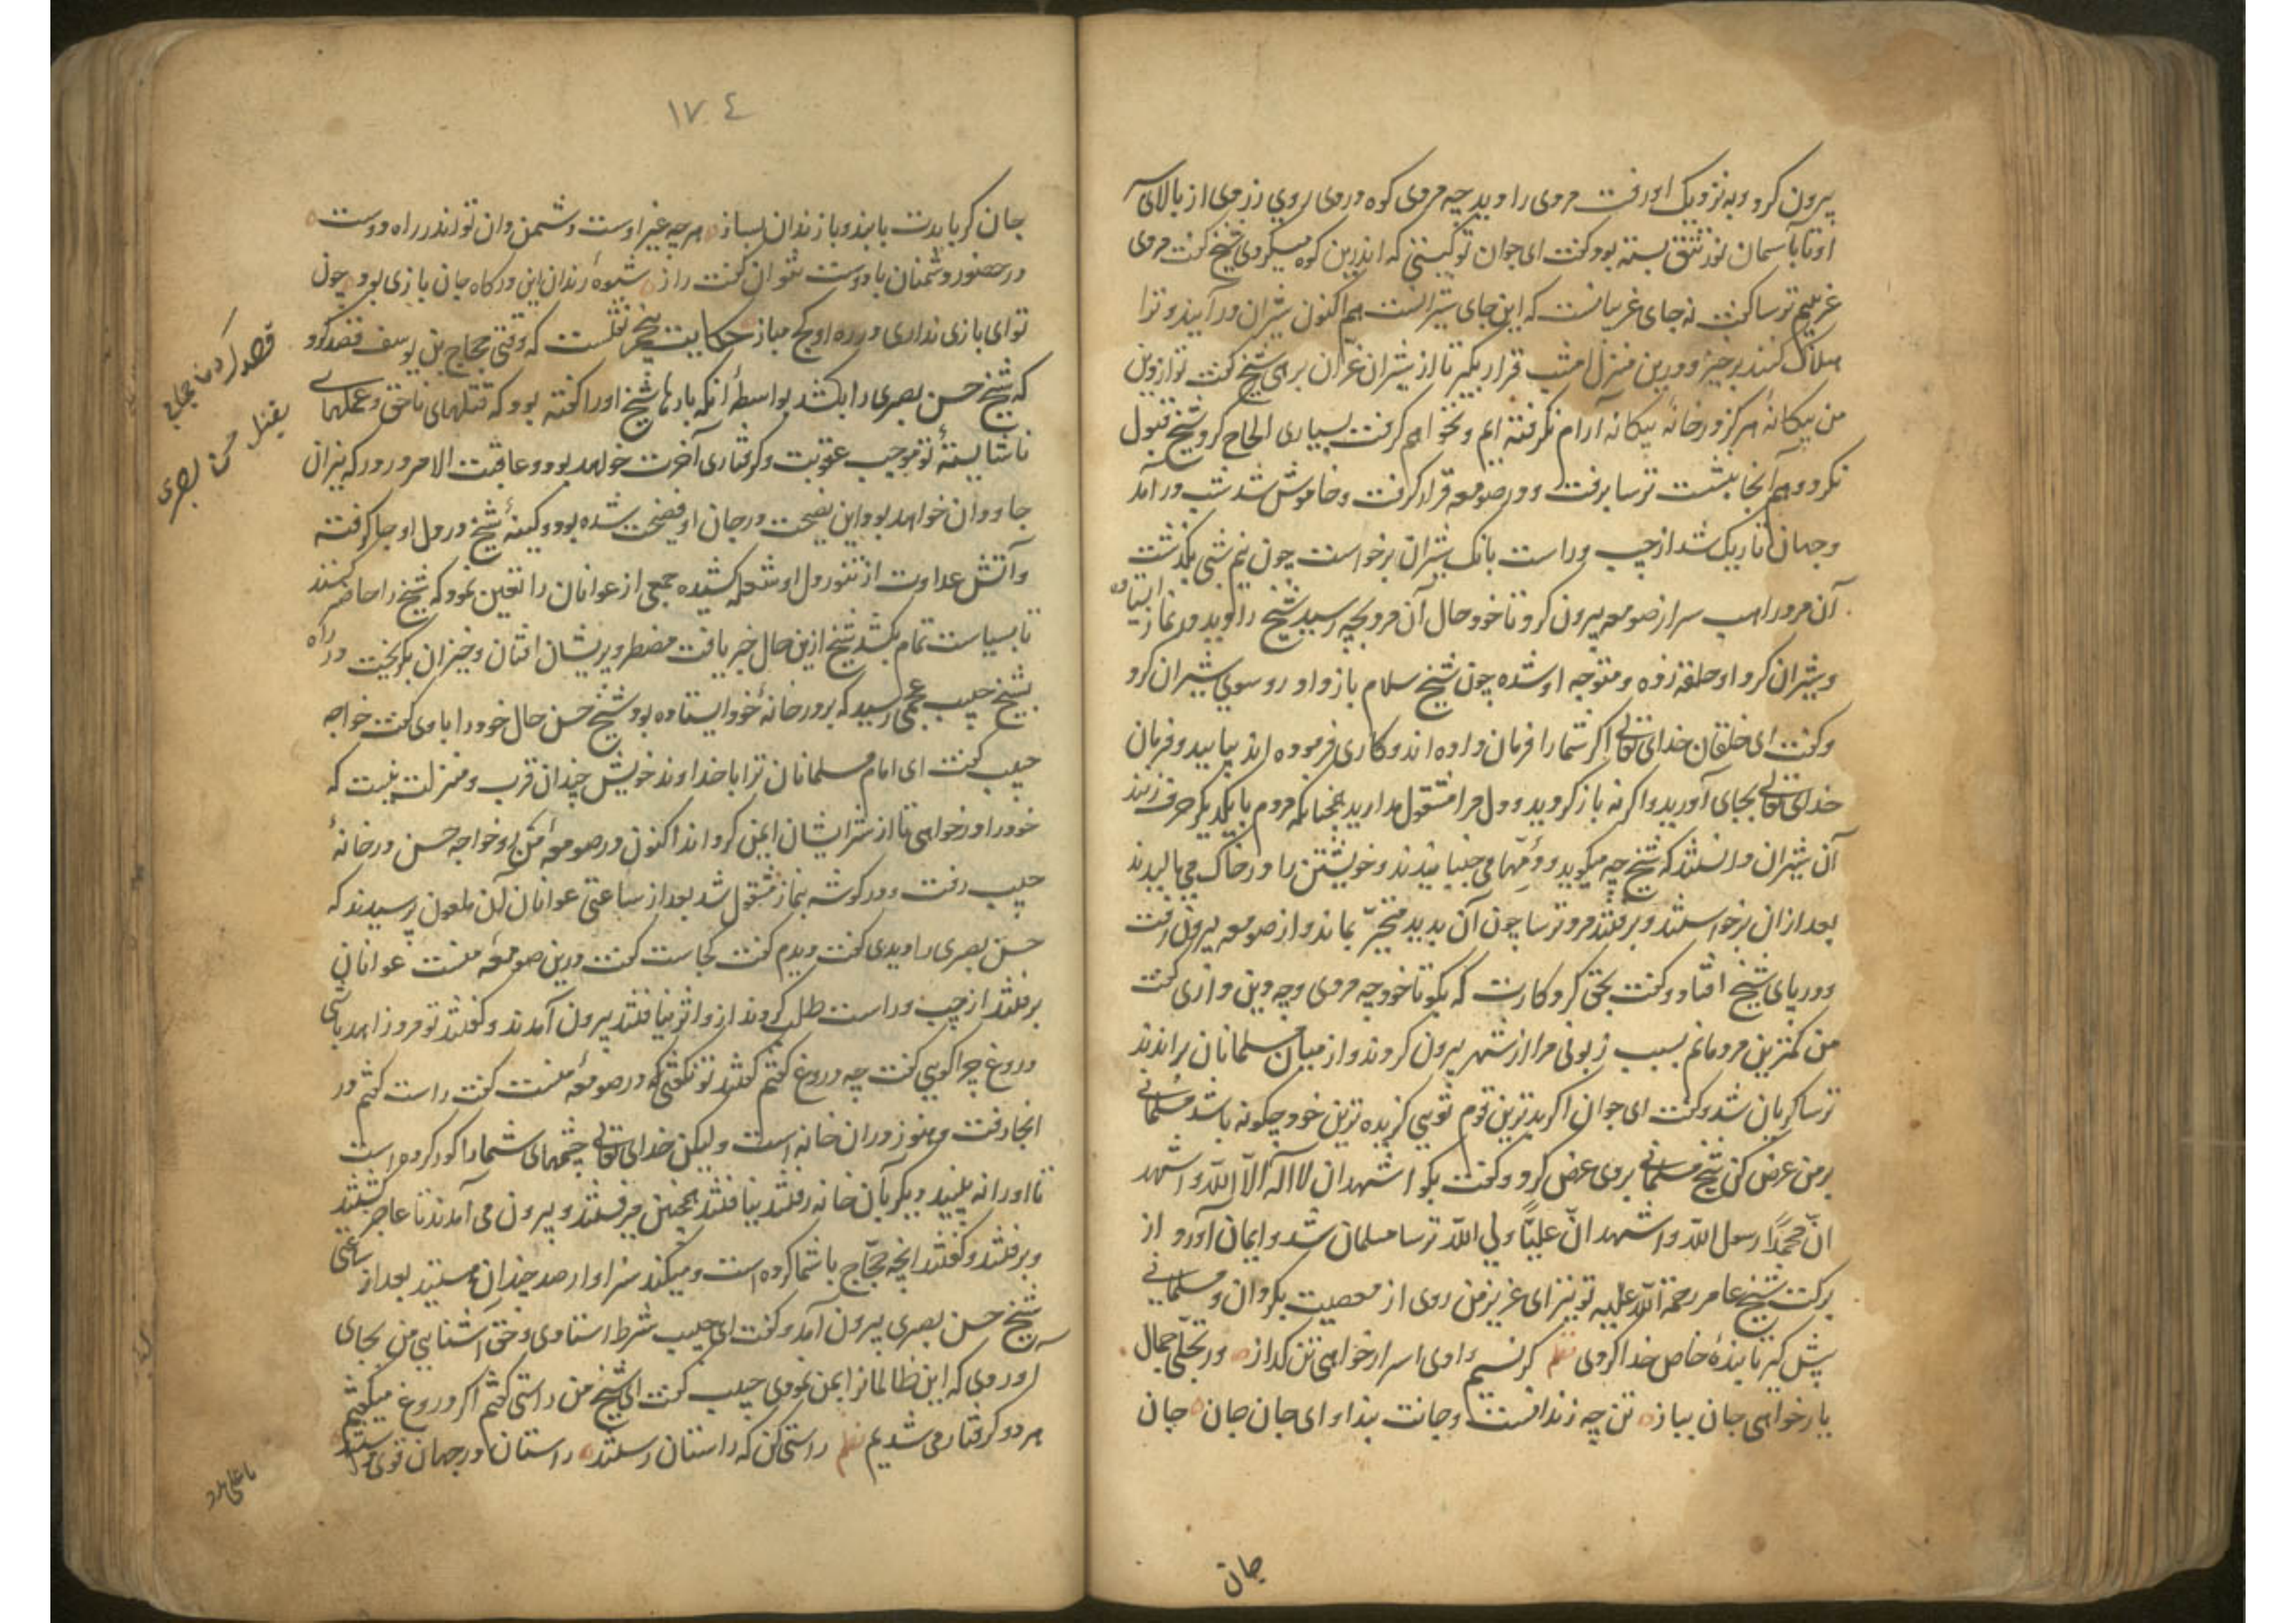 بیرون کرد و به نزدیک او رفت مردی را دید چه مردی کوه دردی روی زردی از بالای سر
او تا باسمان نور تتق بسته بود گفت ای جوان تو کیستی که اندرین کوه میگردی شیخ گفت مردی
غریبم ترسا گفت نه جای غریبانست که این جای شیرانست هم اکنون شیران درآیند و ترا
هلاک کنند برخیز و درین منزل امشب قرار بگیر تا از شیران غران برهی شیخ گفت تو از دین
من بیکانهٔ هرکز در خانهٔ بیکانه آرام نکرفته ایم و نخواهم کرفت بسیاری الحاح کرد شیخ قبول
نکرد و هم آنجا بنشست ترسا برفت و در صومعه قرار کرفت و خاموش شد شب درآمد
و جهان تاریک شد از چپ و راست بانک شیران برخواست چون نیم شبی بگذشت
آن مرد راهب سر از صومعه بیرون کرد تا خود حال آن مرد بچه رسید شیخ را دید در نماز ایستاده
و شیران کرد او حلقه زده و متوجه او شده چون شیخ سلام باز داد رو سوی شیران کرد
و گفت ای خلقان خدای تعالی اگر شما را فرمان داده اند و کاری فرموده اند بیایید و فرمان
خدای تعالی بجای آورید و اگر نه باز کردید و دل مرا مشغول مدارید همچنانکه مردم با یکدیگر حرف زنند
آن شیران دانستند که شیخ چه میگوید و دمها می جنبانیدند و خویشتن را در خاک می مالیدند
بعد ازان برخواستند و برفتند مرد ترسا چون آن بدید متحیر بماند و از صومعه بیرون رفت
و در پای شیخ افتاد و گفت بحق کردکارت که بگو تا خود چه مردی و چه دین داری گفت
من کمترین مردمانم بسبب زبونی مرا از شهر بیرون کردند و از میان مسلمانان براندند
ترسا گریان شد و گفت ای جوان اگر بدترین قوم تویی گزیده ترین خود چگونه باشد مسلمانی
بر من عرض کن شیخ مسلمانی بر وی عرض کرد و گفت بگو اشهد ان لا اله الا الله و اشهد
انّ محمّداً رسول الله و اشهد انّ علیّاً ولی الله ترسا مسلمان شد و ایمان آورد از
برکت شیخ عامر رحمة الله علیه تو نیز ای عزیز من روی از معصیت بگردان و مسلمانی
پیش گیر تا بندهٔ خاص خدا گردی نظم گر نسیم وادی اسرار خواهی تن گداز در تجلّی جمال
یار خواهی جان بباز تن چه زندانست و جانت بند او ای جان جان جان
جان
۱۷۴
جان گر بایدت با بند و با زندان بساز هر چه غیر اوست دشمن دان تو اندر راه دوست
در حضور دشمنان با دوست نتوان گفت راز شیوهٔ رندان این درگاه جان بازی بود چون
تو ای بازی نداری در ره او کج مباز حکایت پنجم نقلست که وقتی حجاج بن یوسف قصد کرد
که شیخ حسن بصری را بکشد بواسطهٔ آنکه بارها شیخ او را گفته بود که قتلهای ناحق و عملهای
ناشایستهٔ تو موجب عقوبت و گرفتاری آخرت خواهد بود و عاقبت الامر در درکه نیران
جاودان خواهد بود این نصیحت در جان او فضیحت شده بود و کینهٔ شیخ در دل او جا گرفته
و آتش عداوت از تنور دل او شعله کشیده جمعی از عوانان را تعین نمود که شیخ را حاضر کنند
تا بسیاست تمام بکشد شیخ ازین حال خبر یافت مضطر و پریشان افتان و خیزان بگریخت در راه
بشیخ حبیب عجمی رسید که بر در خانهٔ خود ایستاده بود شیخ حسن حال خود را با وی گفت خواجه
حبیب گفت ای امام مسلمانان ترا با خداوند خویش چندان قرب و منزلت نیست که
خود را درخواهی تا از شر ایشان ایمن گرداند اکنون در صومعهٔ من رو خواجه حسن در خانهٔ
حبیب رفت و در گوشه بنماز مشغول شد بعد از ساعتی عوانان آن ملعون پرسیدند که
حسن بصری را دیدی گفت دیدم گفت کجاست گفت درین صومعهٔ منست عوانان
برفتند از چپ و راست طلب کردند از و اثر نیافتند بیرون آمدند و گفتند تو مرد زاهد باشی
دروغ چرا گویی گفت چه دروغ گفتم گفتند تو نگفتی که در صومعهٔ منست گفت راست گفتم در
انجا رفت و هنوز دران خانه است ولیکن خدای تعالی چشمهای شما را کور کرده است
تا او را نه بینید دیگر بآن خانه رفتند نیافتند همچنین می رفتند و بیرون می آمدند تا عاجز گشتند
و برفتند و گفتند انچه حجّاج با شما کرده است و میکند سزاوار صد چندان هستید بعد از ساعتی
شیخ حسن بصری بیرون آمد و گفت ای حبیب شرط استادی و حق آشنایی من بجای
آوردی که این ظالمانرا ایمن نمودی حبیب گفت ای شیخ من راستی گفتم اگر دروغ میگفتم
هر دو گرفتار می شدیم نظم راستی کن که راستان رستند راستان در جهان قوی دستند
قصد کردن حجاج
بقتل حسن بصری